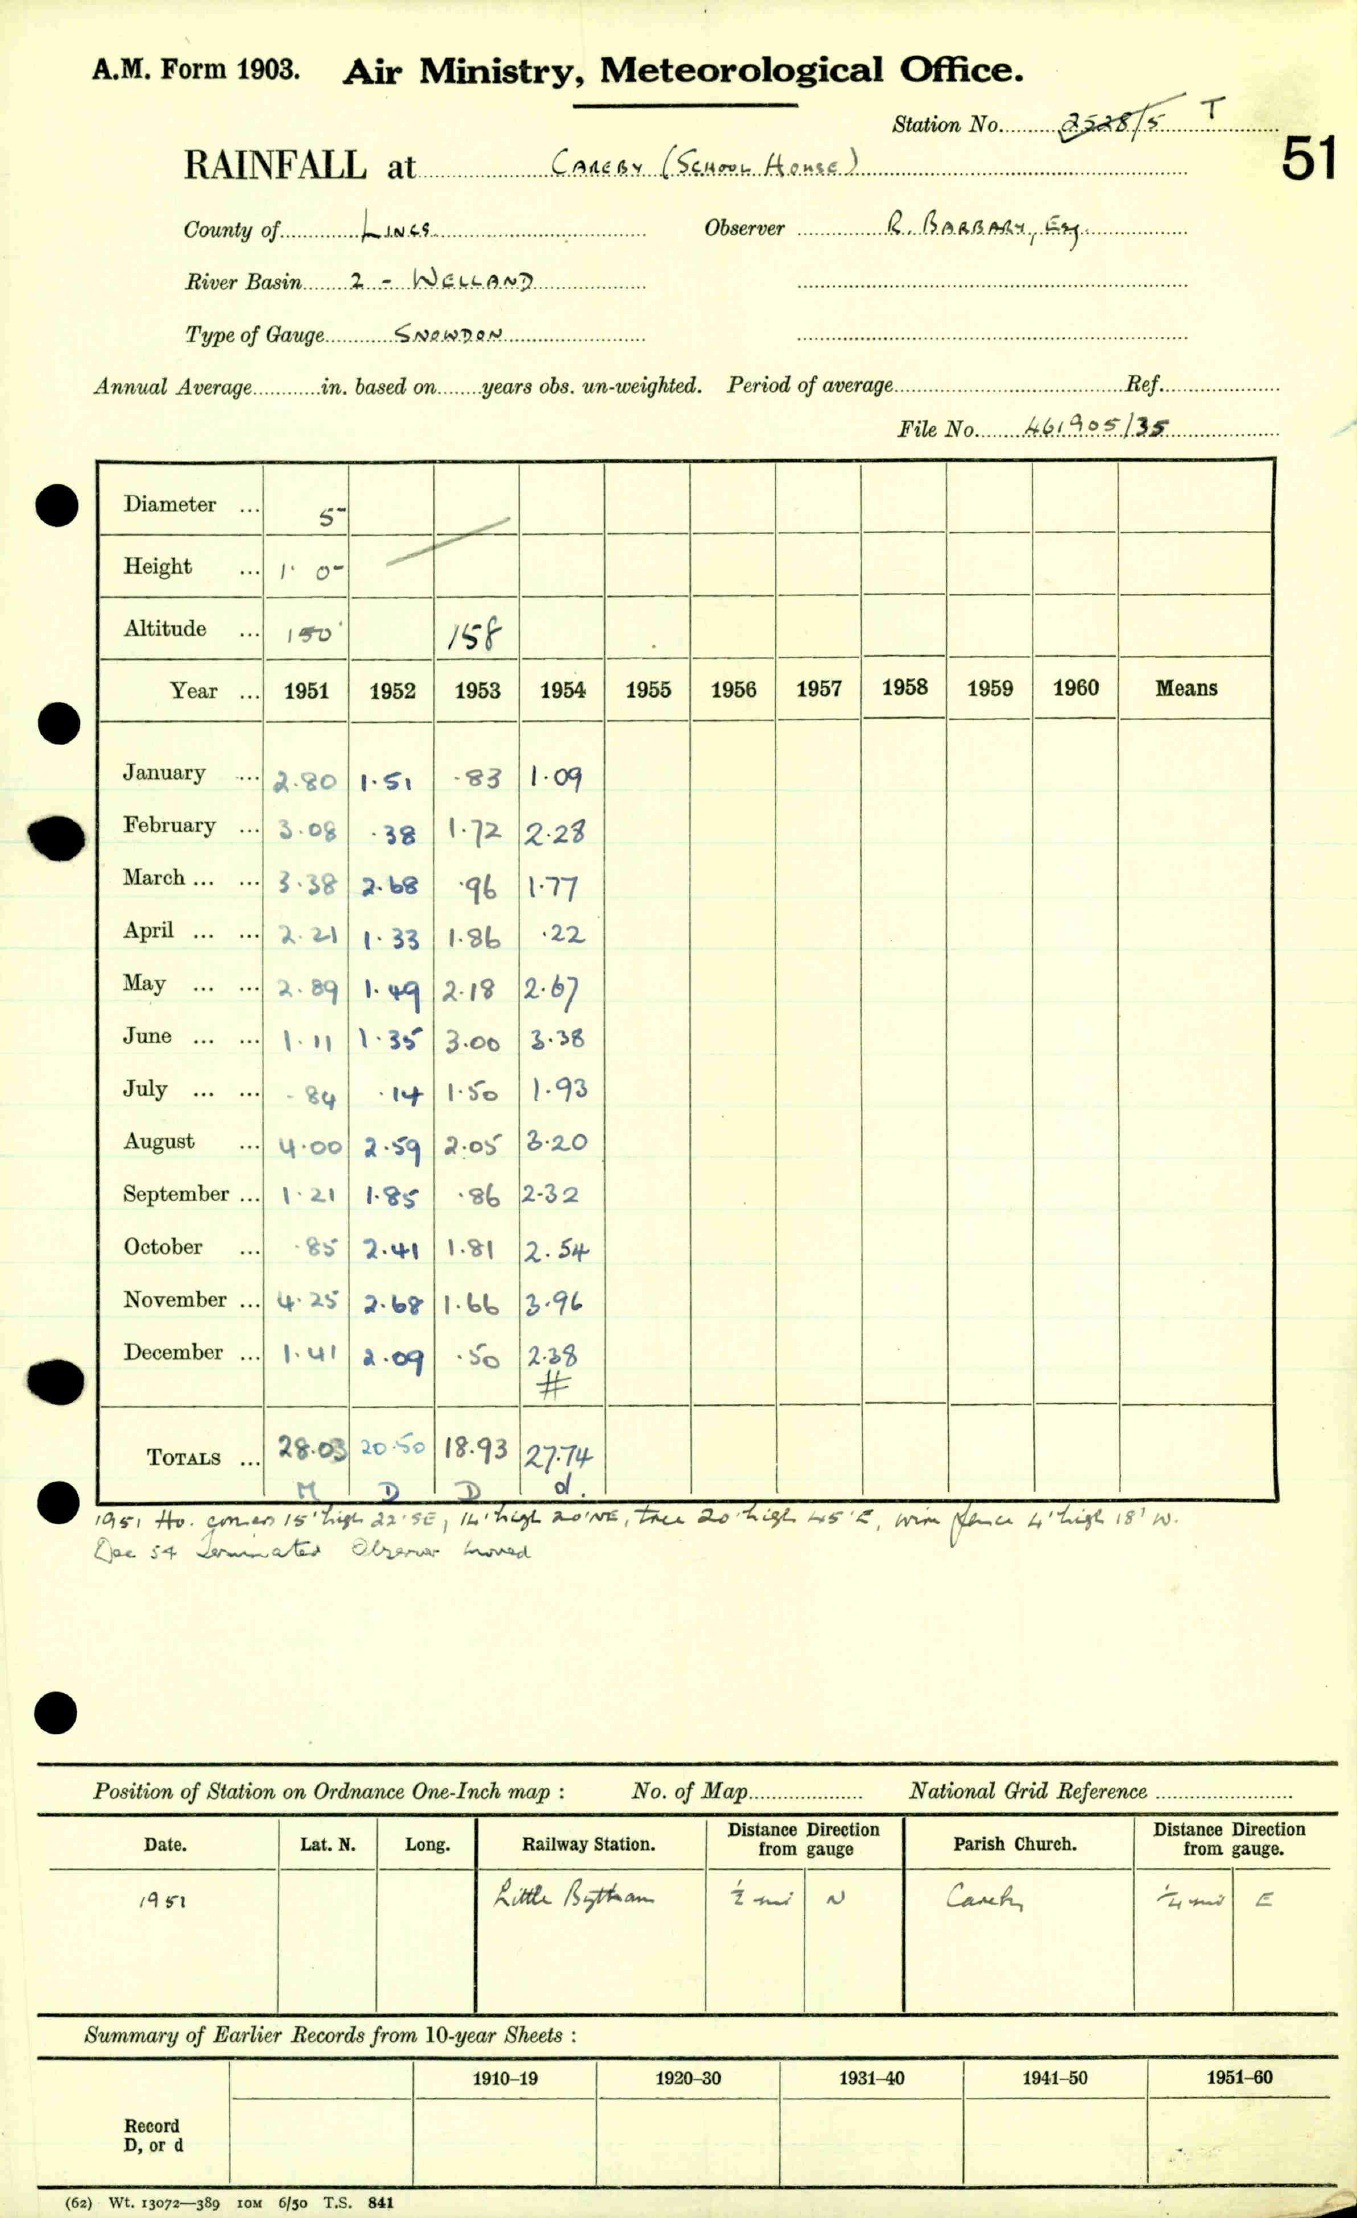 A.M. Form 1903. Air Ministry, Meteorological Office.
Station No. 2528/5 T
51
RAINFALL at CAREBY (SCHOOL HOUSE)
County of LINCS Observer R. BARBARY, Esq.
River Basin 2 - WELLAND
Type of Gauge SNOWDON
Annual Average............in. based on........years obs. un-weighted. Period of average........ Ref.........
File No. 461905/35
Diameter ... 5"
Height ... 1' 0"
Altitude ... 150' 158
Year ... 1951 1952 1953 1954 1955 1956 1957 1958 1959 1960 Means
January ... 2.80 1.51 .83 1.09
February ... 3.08 .38 1.72 2.28
March ... ... 3.38 2.68 .96 1.77
April ... ... 2.21 1.33 1.86 .22
May ... ... 2.89 1.49 2.18 2.67
June ... ... 1.11 1.35 3.00 3.38
July ... ... .84 .14 1.50 1.93
August ... 4.00 2.59 2.05 3.20
September ... 1.21 1.85 .86 2.32
October ... .85 2.41 1.81 2.54
November ... 4.25 2.68 1.66 3.96
December ... 1.41 2.09 .50 2.38
#
TOTALS ... 28.03 20.50 18.93 27.74
M D D d.
1951 Ho. corners 15' high 22' SE, 14' high 20' NE, tree 20' high 45' E, wire fence 4' high 18' W.
Dec 54 Terminated Observer moved
Position of Station on Ordnance One-Inch map : No. of Map........ National Grid Reference ........
Date. Lat. N. Long. Railway Station. Distance Direction from gauge Parish Church. Distance Direction from gauge.
1951 Little Bytham ½ mi N Careby ¼ mi E
Summary of Earlier Records from 10-year Sheets :
1910–19 1920–30 1931–40 1941–50 1951–60
Record
D, or d
(62) Wt. 13072—389 10M 6/50 T.S. 841